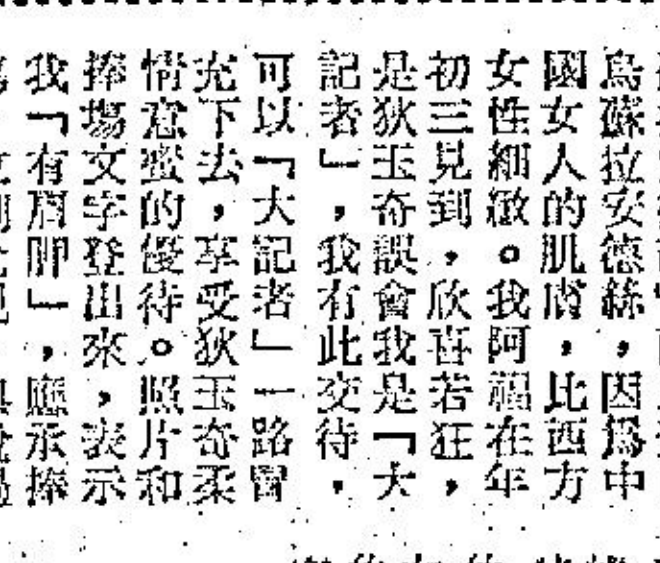 烏蘇拉安德絲，因爲中
國女人的肌膚，比西方
女性細緻。我阿福在年
初三見到，欣喜若狂，
是狄玉奇誤會我是「大
記者」，我有此交待，
可以「大記者」一路冒
充下去，享受狄玉奇柔
情意蜜的優待。照片和
捧塲文字登出來，表示
我「有眉胛」，應承捧